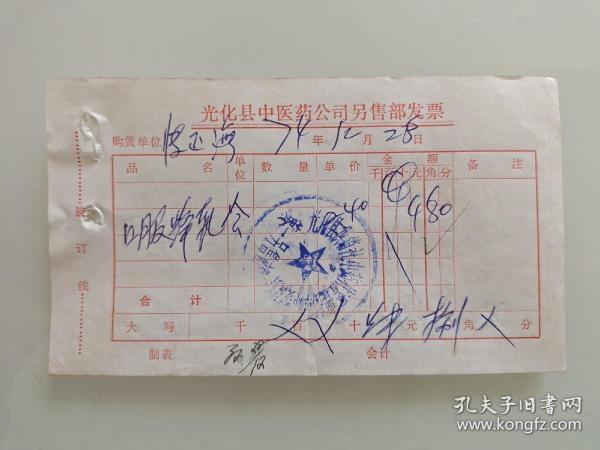 光化县中医药公司另售部发票
购货单位 74年12月28日
品名 单位 数量 单价 金额 备注
千百十元角分
口服蜂乳 盒 40 480
合计
大写 千 百 十 肆元 捌角 分
制表 会计
装订线
孔夫子旧书网
www.kongfz.com